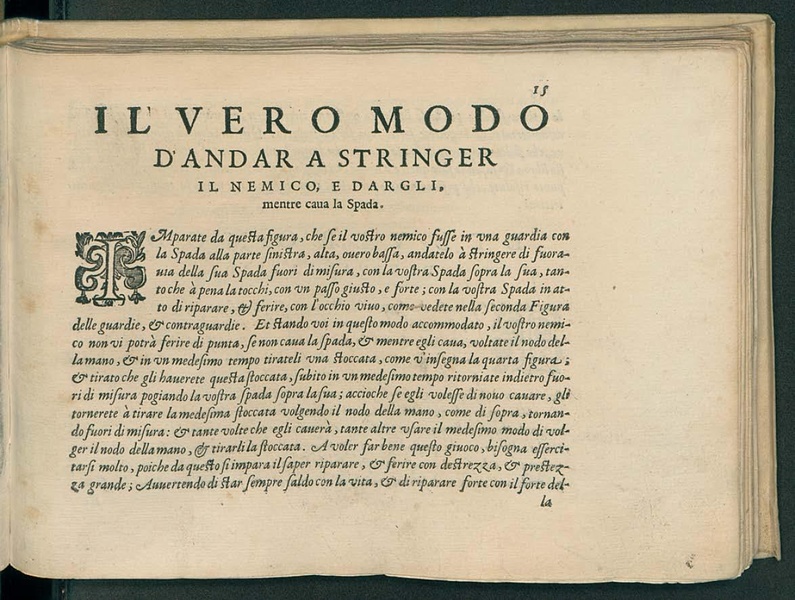 15
IL VERO MODO
D'ANDAR A STRINGER
IL NEMICO, E DARGLI,
mentre caua la Spada.
IMparate da questa figura, che se il vostro nemico fusse in vna guardia con
la Spada alla parte sinistra, alta, ouero bassa, andatelo à stringere di fuora-
uia della sua Spada fuori di misura, con la vostra Spada sopra la sua, tan-
to che à pena la tocchi, con vn passo giusto, e forte; con la vostra Spada in at-
to di riparare, & ferire, con l'occhio viuo, come vedete nella seconda Figura
delle guardie, & contraguardie. Et stando voi in questo modo accommodato, il vostro nemi-
co non vi potrà ferire di punta, se non caua la spada, & mentre egli caua, voltate il nodo del-
la mano, & in vn medesimo tempo tirateli vna stoccata, come v'insegna la quarta figura;
& tirato che gli hauerete questa stoccata, subito in vn medesimo tempo ritorniate indietro fuo-
ri di misura pogiando la vostra spada sopra la sua; accioche se egli volesse di nouo cauare, gli
tornerete à tirare la medesima stoccata volgendo il nodo della mano, come di sopra, tornan-
do fuori di misura: & tante volte che egli cauerà, tante altre vsare il medesimo modo di vol-
ger il nodo della mano, & tirarli la stoccata. A voler far bene questo giuoco, bisogna esserci-
tarsi molto, poiche da questo si impara il saper riparare, & ferire con destrezza, & prestez-
za grande; Auuertendo di star sempre saldo con la vita, & di riparare forte con il forte del-
la